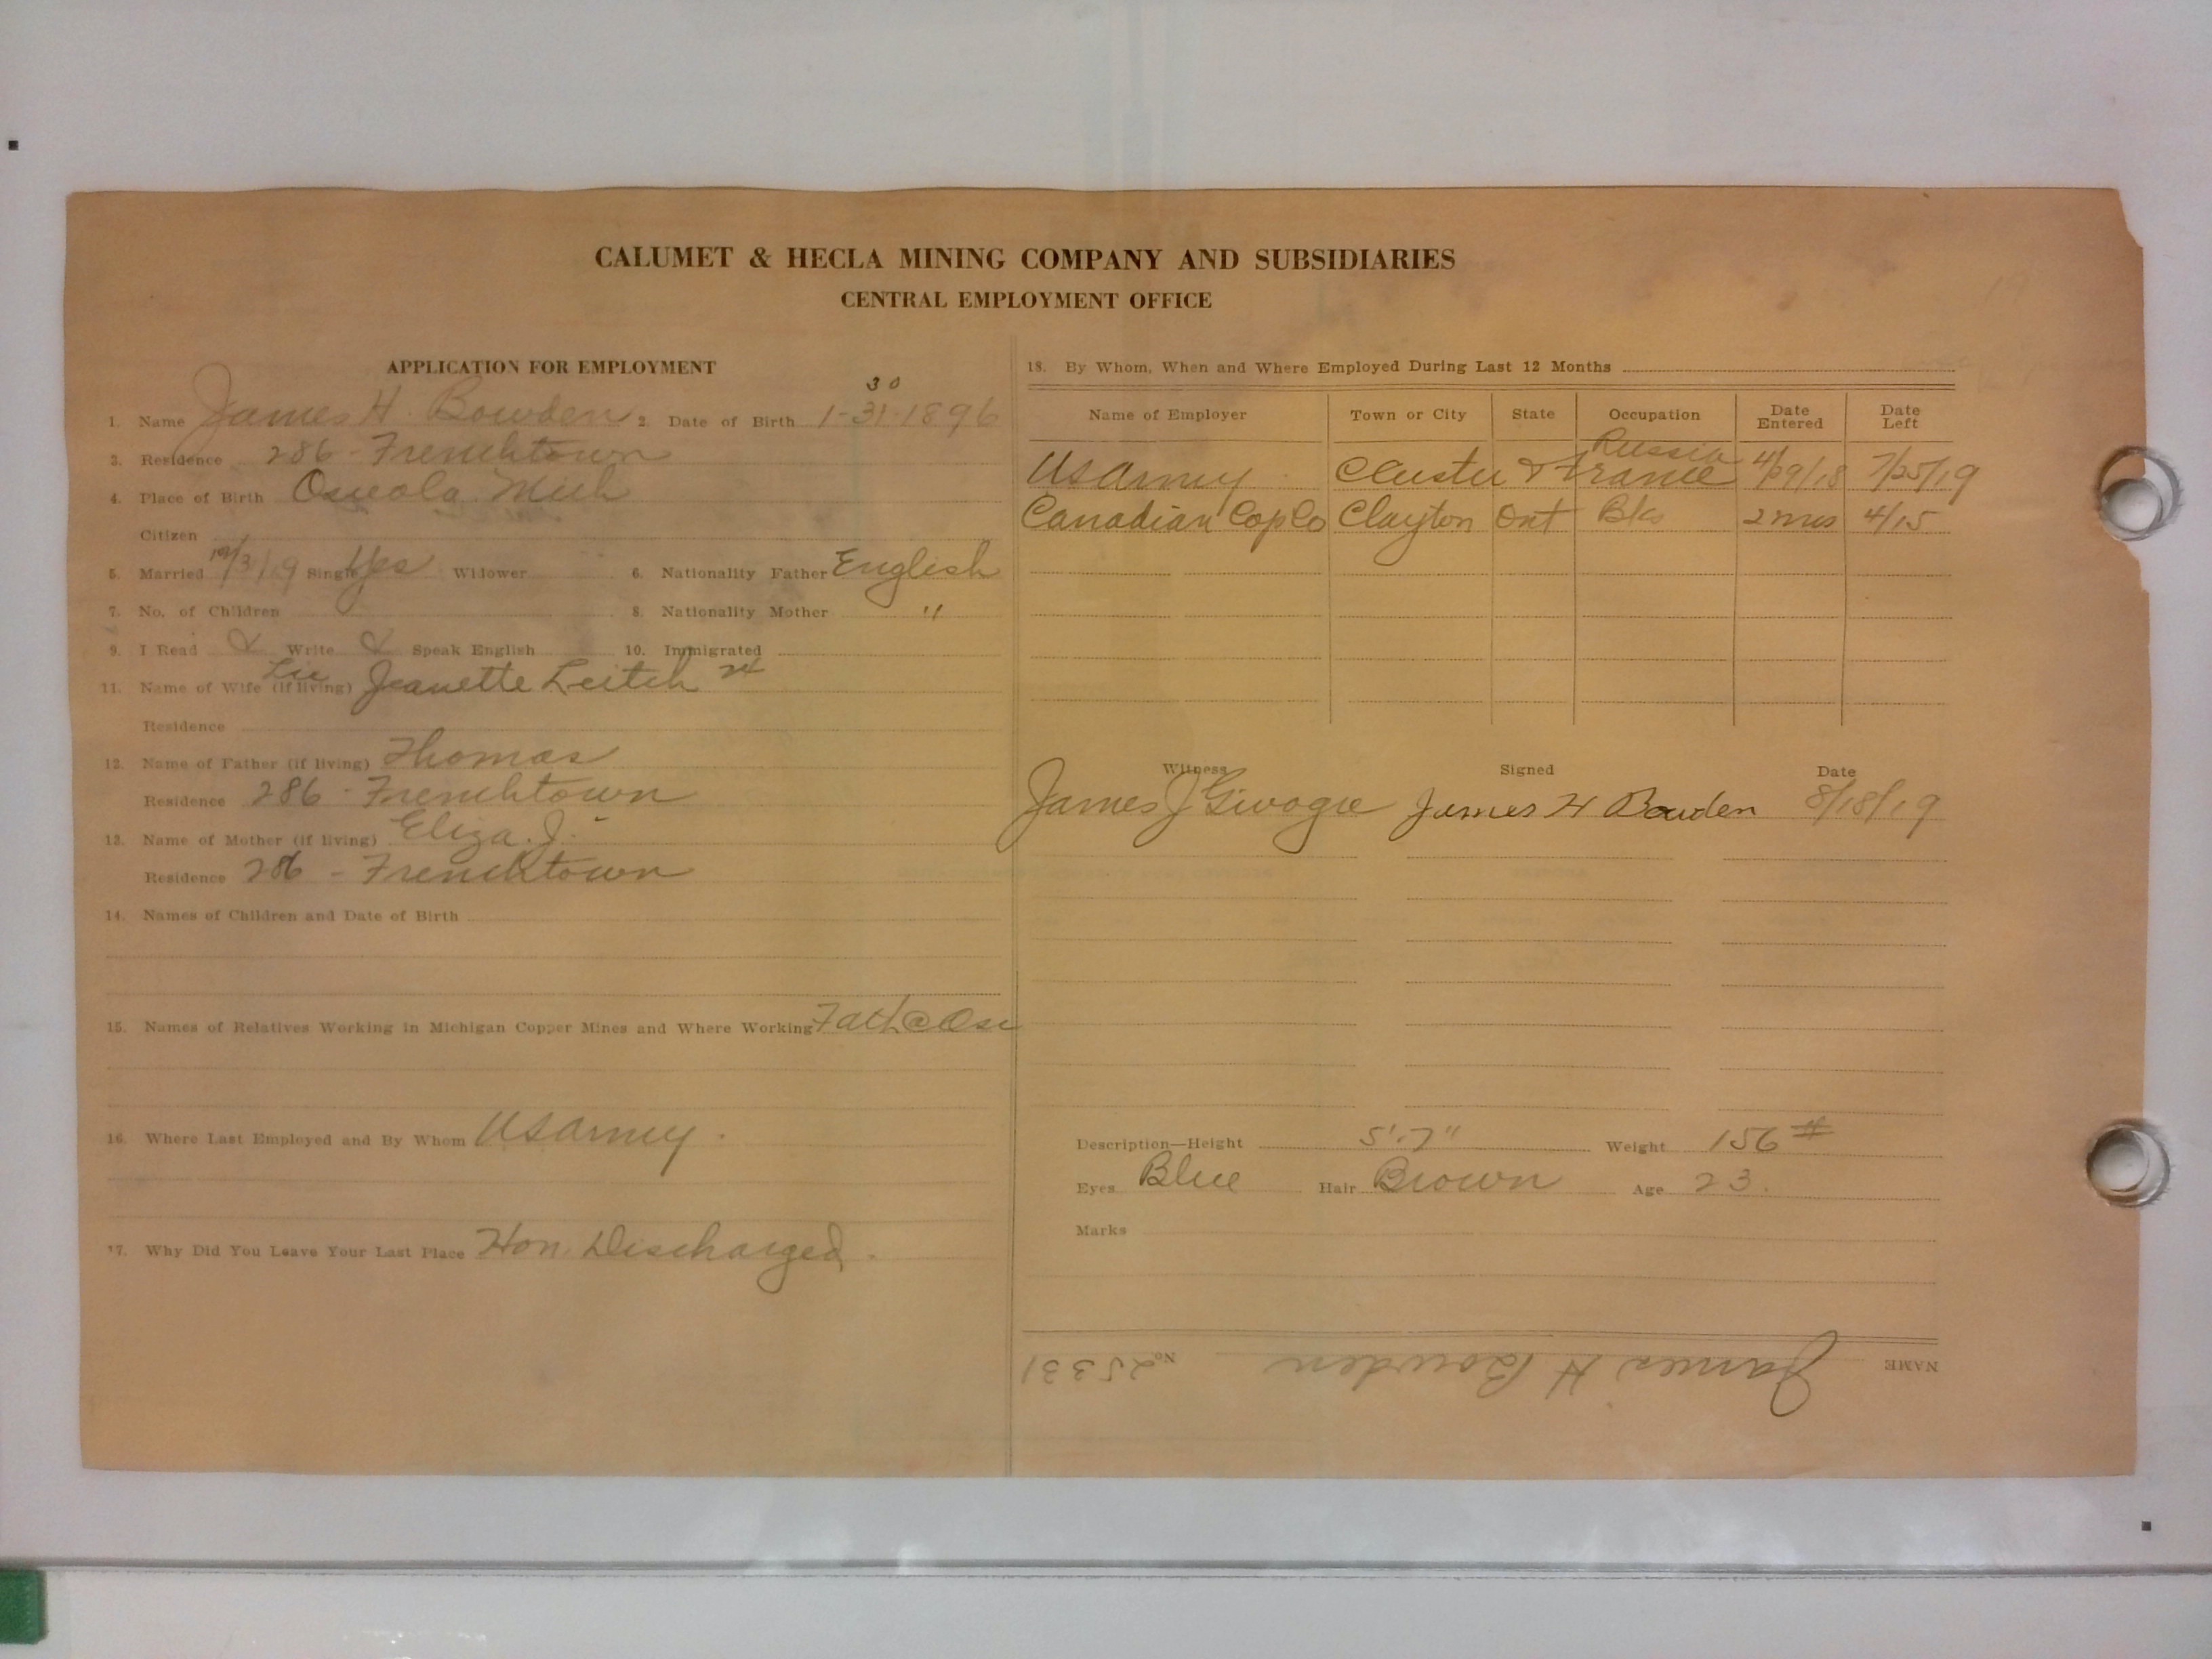 CALUMET & HECLA MINING COMPANY AND SUBSIDIARIES
CENTRAL EMPLOYMENT OFFICE
APPLICATION FOR EMPLOYMENT
30
1. Name James H. Bowden 2. Date of Birth 1-31-1896
3. Residence 286 - Frenchtown
4. Place of Birth Osceola Mich
Citizen
5. Married 10/3/19 Single Yes Widower 6. Nationality Father English
7. No. of Children 8. Nationality Mother "
9. I Read & Write & Speak English 10. Immigrated
11. Name of Wife (if living) Jeanette Leitch 24
Residence
12. Name of Father (if living) Thomas
Residence 286 - Frenchtown
13. Name of Mother (if living) Eliza. J.
Residence 286 - Frenchtown
14. Names of Children and Date of Birth
15. Names of Relatives Working in Michigan Copper Mines and Where Working Fath @ Osc
16. Where Last Employed and By Whom US Army.
17. Why Did You Leave Your Last Place Hon. Discharged.
18. By Whom, When and Where Employed During Last 12 Months
Name of Employer Town or City State Occupation Date Entered Date Left
Russia
US Army Custer & France 4/29/18 7/25/19
Canadian Cop Co Clayton Ont Bks 2 mos 4/15
Witness Signed Date
James J James H Bowden 8/18/19
Description—Height 5'-7" Weight 156 #
Eyes Blue Hair Brown Age 23.
Marks
NAME James H Bowden No 25331